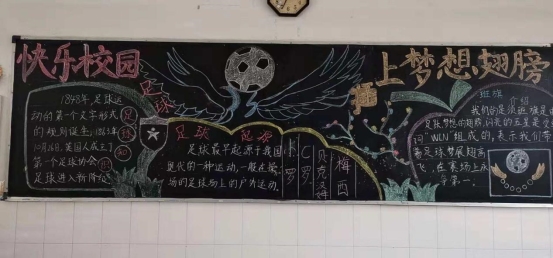 快乐校园
1848年,足球运
动的第一个文字形式
的规则诞生,1863年
10月26日,英国人成立了
第一个足球协会
足球进入新阶段
足球
足球 起源
足球最早起源于我国
汉代的一种运动,一般在
场的足球场上的户外运动
C罗
贝克汉姆
梅西
插上梦想翅膀
班旗
介绍
我们的是须
足球梦想的翅膀,闪亮的五星是
"WIN"组成的,表示我们
足球梦展翅高
飞,在赛场上永
争第一。